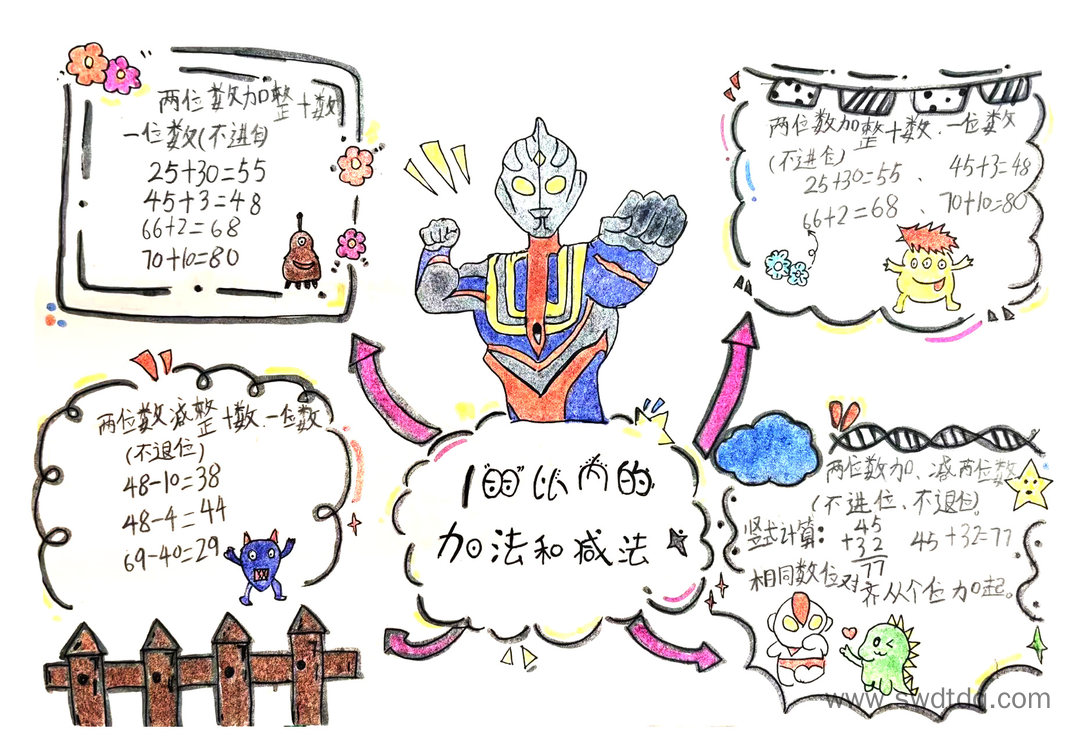 两位数加整十数
一位数(不进位)
25+30=55
45+3=48
66+2=68
70+10=80
两位数加整十数、一位数
(不进位)
25+30=55、45+3=48
66+2=68、70+10=80
两位数减整十数、一位数
(不退位)
48-10=38
48-4=44
69-40=29
100以内的
加法和减法
两位数加、减两位数
(不进位、不退位)
竖式计算:
45
+32
77
45+32=77
相同数位对齐从个位加起。
www.swdtdq.com